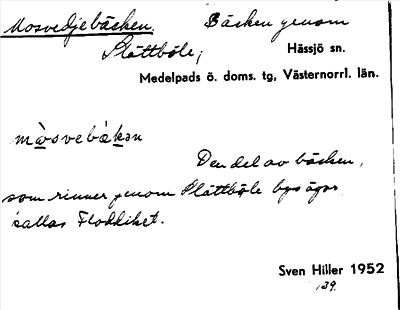 Mosvedjebäcken. Bäcken genom
Slättböle, Hässjö sn.
Medelpads ö. doms. tg, Västernorrl. län.
Den del av bäcken,
som rinner genom Slättböle bys ägor
kallas Floddiket.
Sven Hiller 1952
139.